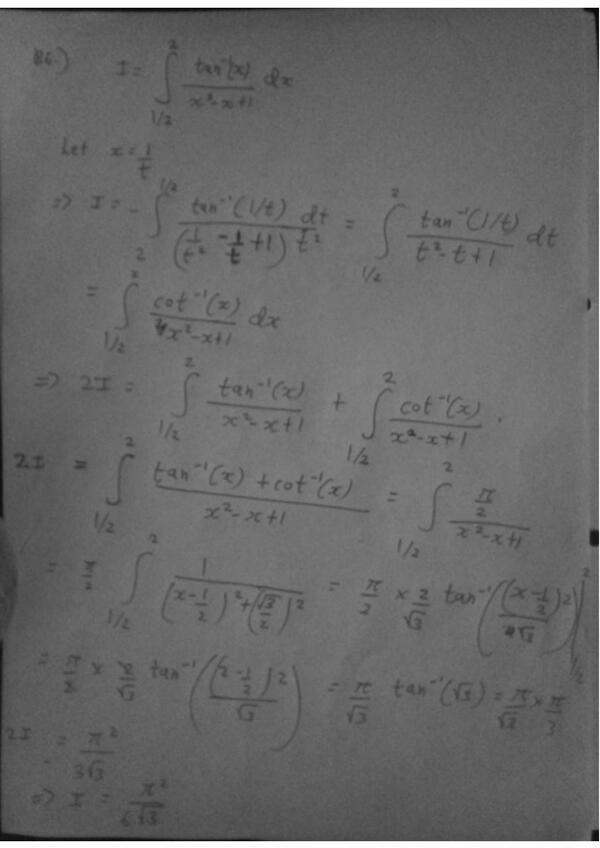 86.) I = ∫_{1/2}^{2} tan⁻¹(x) / (x² - x + 1) dx
Let x = 1/t
=> I = - ∫_{2}^{1/2} tan⁻¹(1/t) / (1/t² - 1/t + 1) dt / t² = ∫_{1/2}^{2} tan⁻¹(1/t) / (t² - t + 1) dt
= ∫_{1/2}^{2} cot⁻¹(x) / (x² - x + 1) dx
=> 2I = ∫_{1/2}^{2} tan⁻¹(x) / (x² - x + 1) + ∫_{1/2}^{2} cot⁻¹(x) / (x² - x + 1) .
2I = ∫_{1/2}^{2} (tan⁻¹(x) + cot⁻¹(x)) / (x² - x + 1) = ∫_{1/2}^{2} (π/2) / (x² - x + 1)
= π/2 ∫_{1/2}^{2} 1 / ((x - 1/2)² + (√3/2)²) = π/2 × 2/√3 tan⁻¹((x - 1/2)2 / √3) |_{1/2}^{2}
= π/2 × 2/√3 tan⁻¹((2 - 1/2)2 / √3) = π/√3 tan⁻¹(√3) = π/√3 × π/3
2I = π² / 3√3
=> I = π² / 6√3